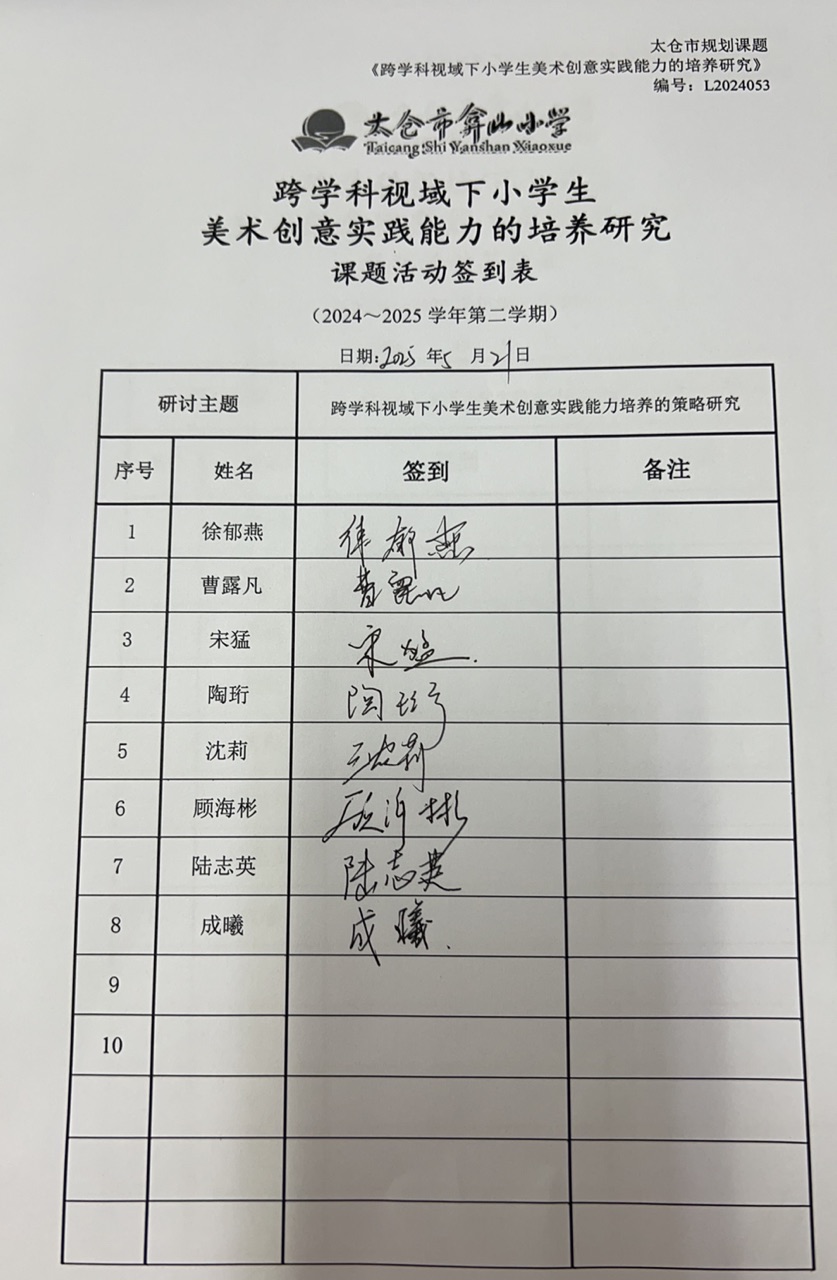 太仓市规划课题
《跨学科视域下小学生美术创意实践能力的培养研究》
编号：L2024053
太仓市弇山小学
Taicang Shi Yanshan Xiaoxue
跨学科视域下小学生
美术创意实践能力的培养研究
课题活动签到表
（2024～2025 学年第二学期）
日期:2025 年5 月21日
研讨主题 跨学科视域下小学生美术创意实践能力培养的策略研究
序号 姓名 签到 备注
1 徐郁燕 徐郁燕
2 曹露凡 曹露凡
3 宋猛 宋猛.
4 陶珩 陶珩
5 沈莉
6 顾海彬 顾海彬
7 陆志英 陆志英
8 成曦 成曦.
9
10